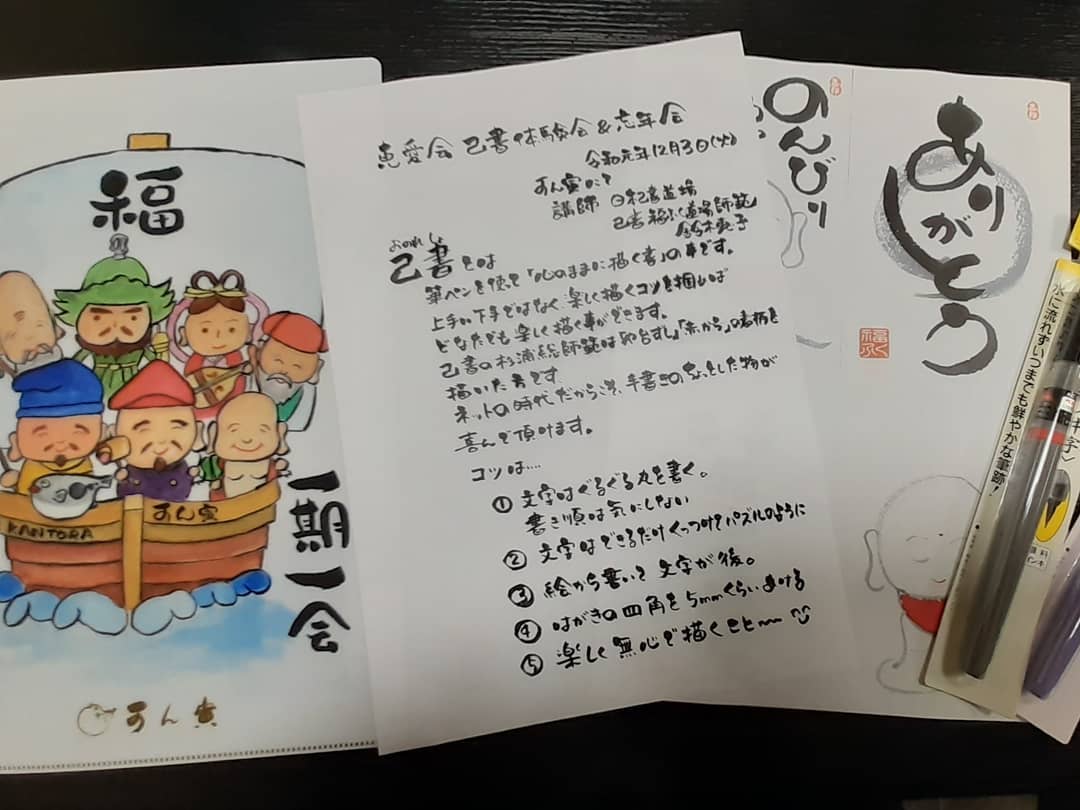 福
KANTORA
あん寅
一期一会
あん寅
恵愛会 己書体験会&忘年会
令和元年12月3日(火)
あん寅にて
講師 日本己書道場
己書 福ふく道場師範
おのれしょ
己書とは
筆ペンを使って「心のままに描く書」の事です。
上手か下手ではなく、楽しく描くコツを掴めば
どなたでも楽しく描く事ができます。
己書の杉浦総師範は初台すし「赤から」の看板を
描いた方です。
ネットの時代だからこそ、手書きのちょっとした物が
喜んで頂けます。
コツは....
① 文字はぐるぐる丸を書く。
書き順は気にしない
② 文字はできるだけくっつけてパズルのように
③ 絵から書いて文字が後。
④ はがきの四角を5mmくらいあける
⑤ 楽しく無心で描くこと〜
のんびり
ありがとう
福ふく
水に流れずいつまでも鮮やかな筆跡!